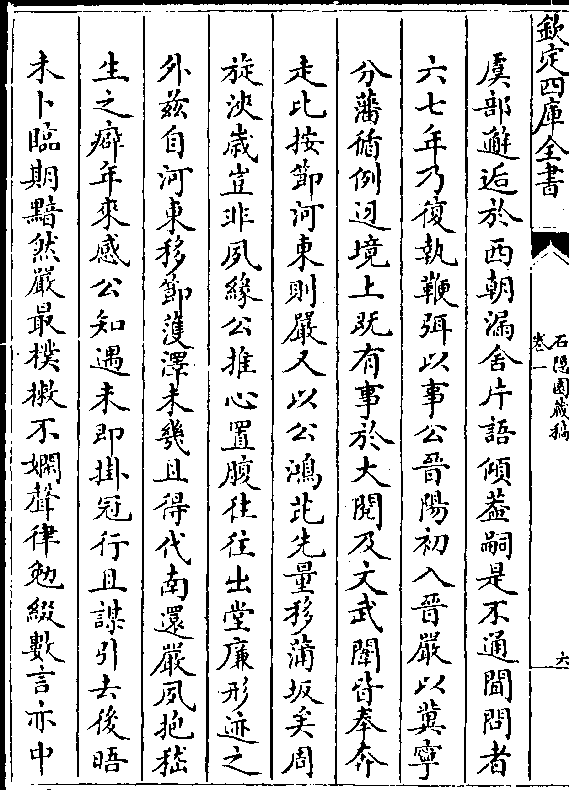 欽定四庫全書
石隱園藏稿
卷一
六
虞部邂逅於西朝漏舍片語傾葢嗣是不通聞問者
六七年乃復執鞭弭以事公晉陽初入晉嚴以冀寧
分藩循例迓境上既有事於大閱及文武闈皆奉奔
走比按節河東則嚴又以公鴻芘先量移蒲坂矣周
旋浹歲豈非夙緣公推心置腹往往出堂廉形迹之
外兹自河東移節濩澤未幾且得代南還嚴夙抱嵇
生之癖年來感公知遇未即掛冠行且謀引去後晤
未卜臨期黯然嚴最樸樕不嫻聲律勉綴數言亦中